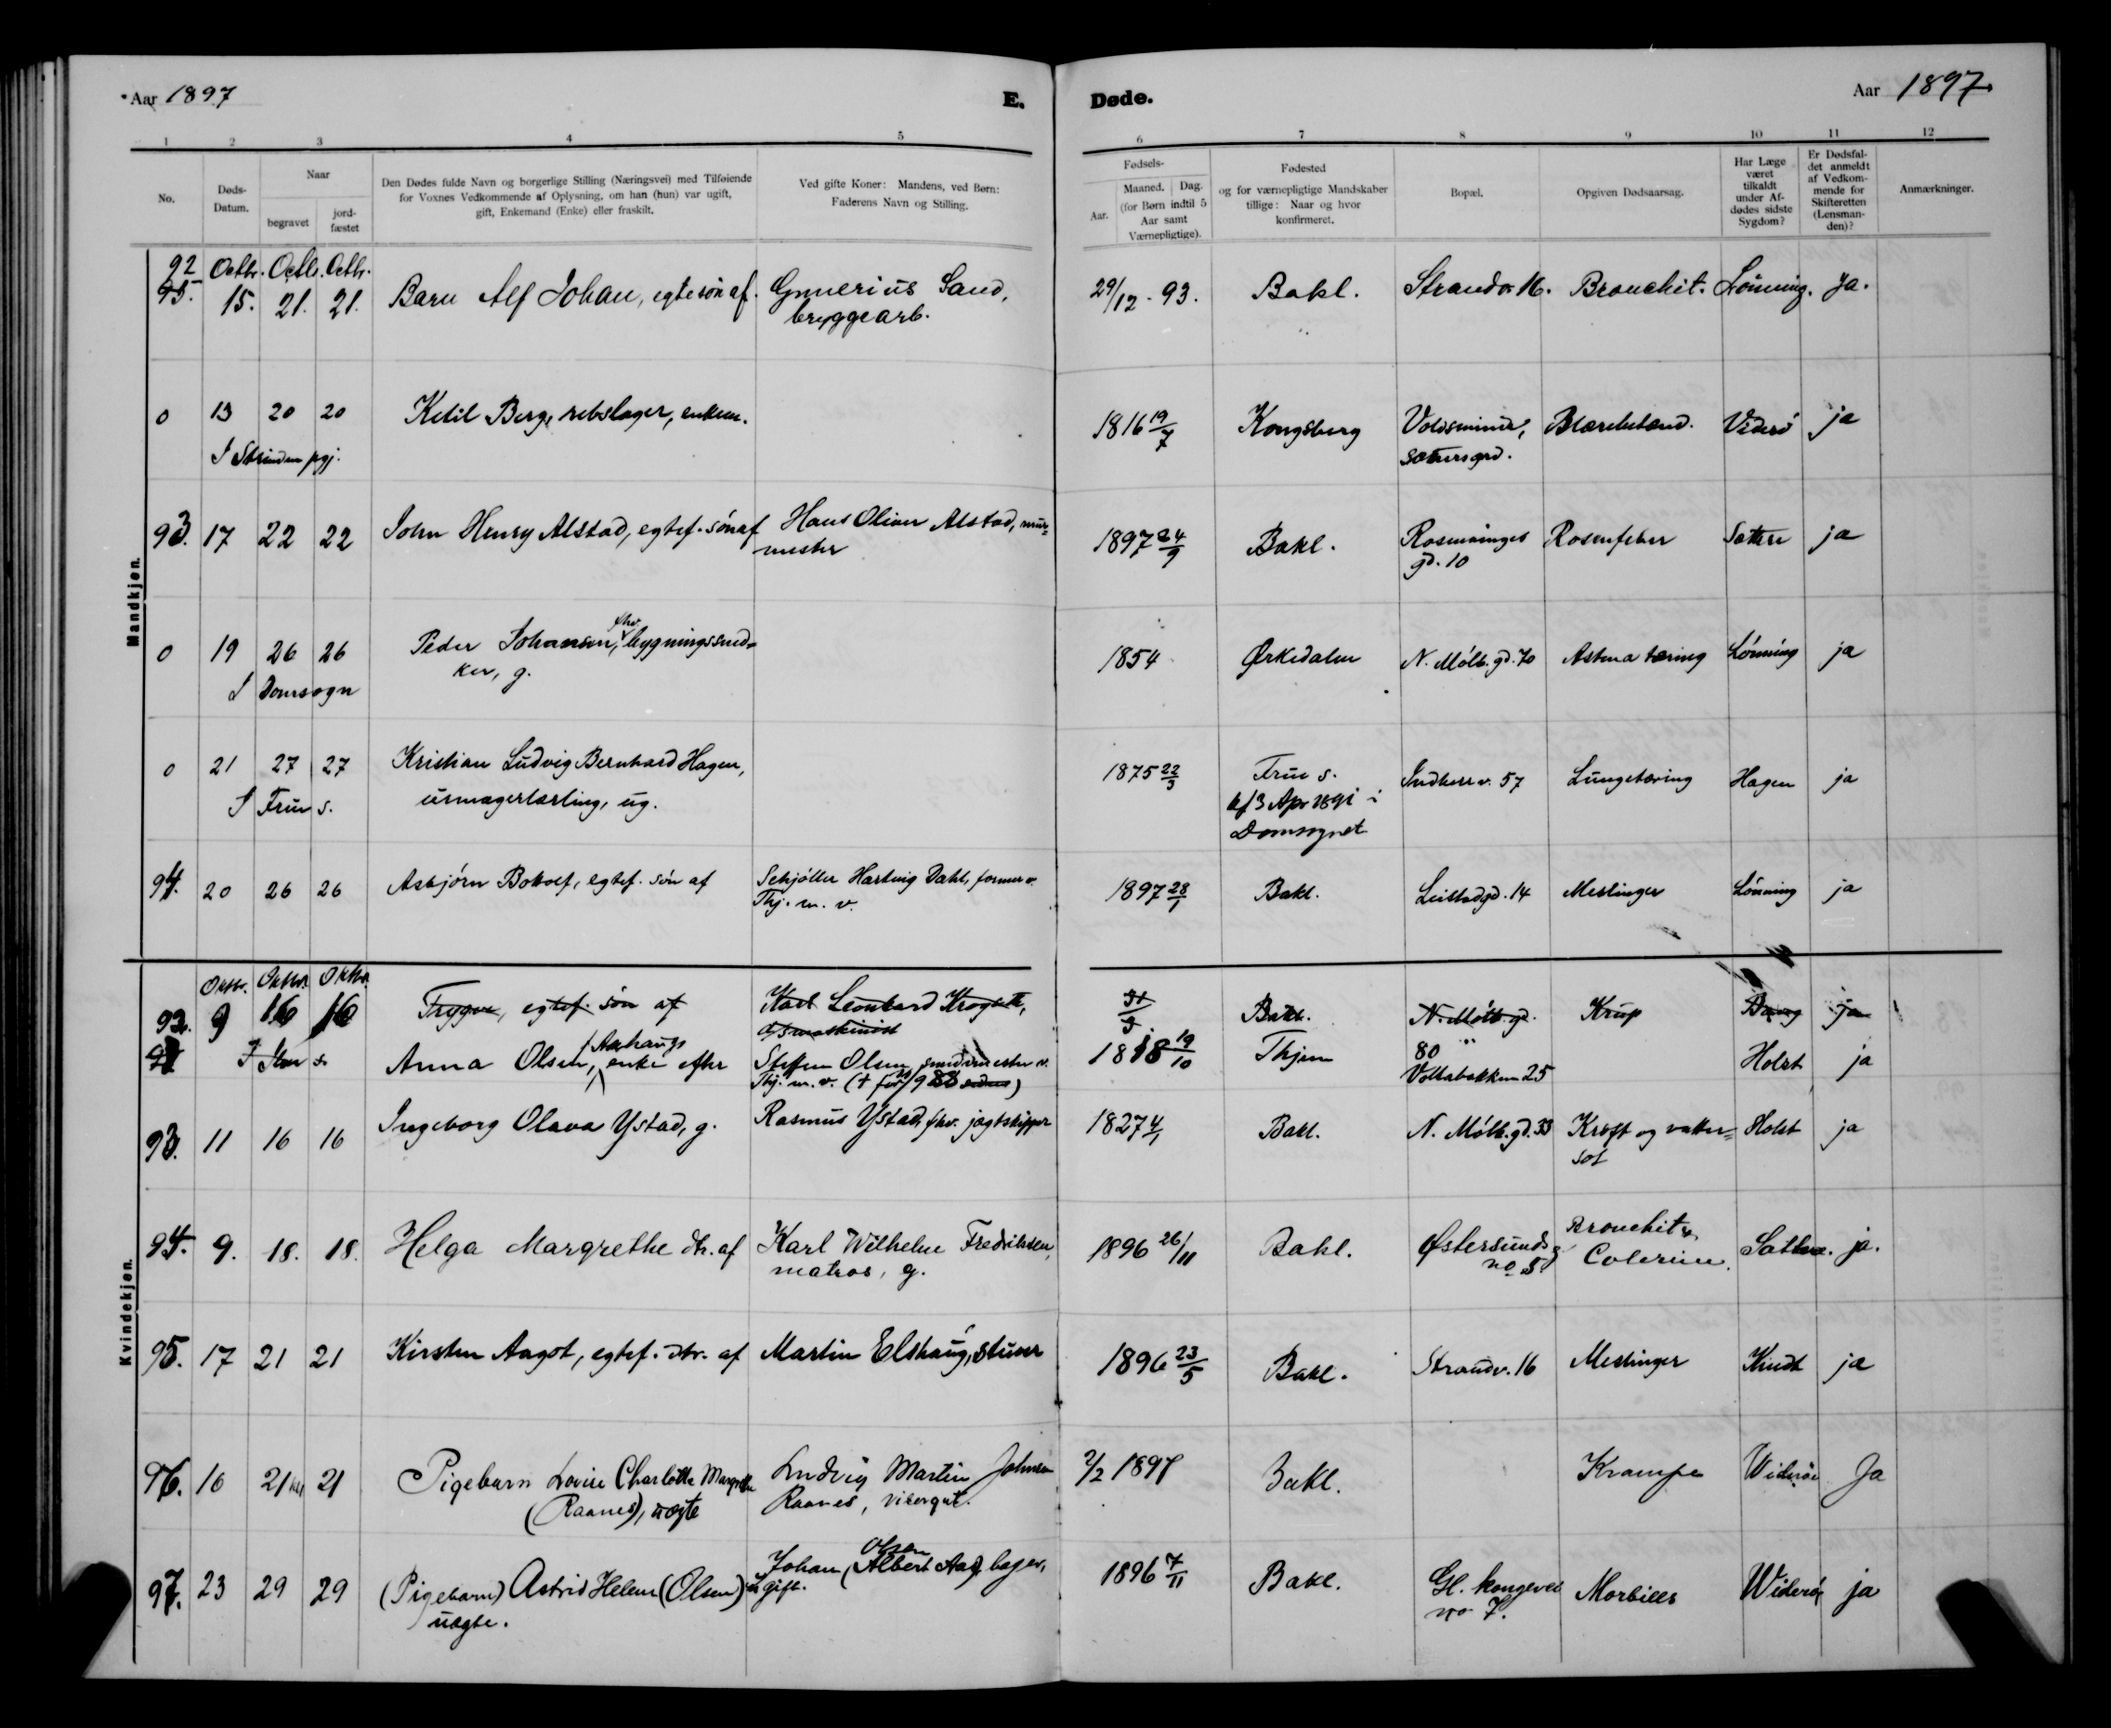 Aar 1897
E.
Døde.
Aar 1897
1 2 3 4 5 6 7 8 9 10 11 12
No.
Døds-
Datum.
Naar
begravet
jord-
fæstet
Den Dødes fulde Navn og borgerlige Stilling (Næringsvei) med Tilføiende
for Voxnes Vedkommende af Oplysning, om han (hun) var ugift,
gift, Enkemand (Enke) eller fraskilt.
Ved gifte Koner: Mandens, ved Børn:
Faderens Navn og Stilling.
Fødsels-
Aar.
Maaned. Dag.
(for Børn indtil 5
Aar samt
Værnepligtige).
Fødested
og for værnepligtige Mandskaber
tillige: Naar og hvor
konfirmeret.
Bopæl.
Opgiven Dødsaarsag.
Har Læge
været
tilkaldt
under Af-
dødes sidste
Sygdom?
Er Dødsfal-
det anmeldt
af Vedkom-
mende for
Skifteretten
(Lensman-
den)?
Anmærkninger.
Mandkjøn.
Octbr. Octb. Octbr.
92 15. 21. 21. Barn Alf Johan, egte søn af Gunerius Sand, 29/12 - 93. Bakl. Strandv. 16. Bronchit. Lönning. ja.
bryggearb.
0 13 20 20 Ketil Berg, rebslager, enkem. 1816 19/7 Kongsberg Voldsminde, Blærebetænd. Viderö ja
I Strinden pgj.
sætersgrd.
93. 17 22 22 John Henry Alstad, egtef. sön af Hans Oliver Alstad, mur- 1897 24/9 Bakl. Rosenborgs Rosenfeber Sættre ja
mester
gd. 10
0 19 26 26 Peder Johansen, fhv. bygningssned- 1854 Ørkedalen N. Möllb. gd. 70 Astma tæring Lönning ja
ker, g.
I Domsogn
0 21 27 27 Kristian Ludvig Bernhard Hagen, 1875 22/3 Frue s. Indherr v. 57 Lungetæring Hagen ja
urmagerlærling, ug.
I Frue s.
kf 3 Apr 1891 i
Domsognet
94. 20 26 26 Asbjörn Botolf, egtef. sön af Schjöller Hartvig Dahl, former v. 1897 28/1 Bakl. Leistadgd. 14 Meslinger Lönning ja
Thj. m. v.
Kvindekjøn.
Oktbr. Oktbr. Oktbr.
92. 9 16 16 Trygve, egtef. søn af Karl Leonhard Krogseth, 31/3 Bakl. N. Möllb. gd. Krup ja
maskinist
80
I Ilen s. Anna Olsen, Aanhaugs enke efter Steffen Olsen, smedemester v. 1818 19/10 Thjem Voldabakken 25 Holst ja
Thj. m. v.
93. 11 16 16 Ingeborg Olava Ystad, g. Rasmus Ystad, fhv. jagtskipper 1827 4/1 Bakl. N. Möllb. gd. 33 Kræft og vatter- Holst ja
sot
94. 9. 18. 18. Helga Margrethe dtr. af Karl Wilhelm Fredriksen, 1896 26/11 Bakl. Østersunds g. Bronchit & Sættre. ja.
matros, g.
no 5.
Colerine.
95. 17 21 21 Kirsten Aagot, egtef. dtr. af Martin Elshaug, stuer 1896 23/5 Bakl. Strandv. 16 Meslinger Kindt ja
96. 16 21 21 Pigebarn Lovise Charlotte Margrethe Ludvig Martin Johnsen 2/2 1897 Bakl. Krampe Widerøe Ja
(Raanes), uægte
Raanes, visergut.
97. 23 29 29 (Pigebarn) Astrid Helene (Olsen) Johan Olsen (Albert Aas) bager, 1896 7/11 Bakl. Gl. kongevei Morbilli Widerö ja
uægte.
ugift.
no 7.